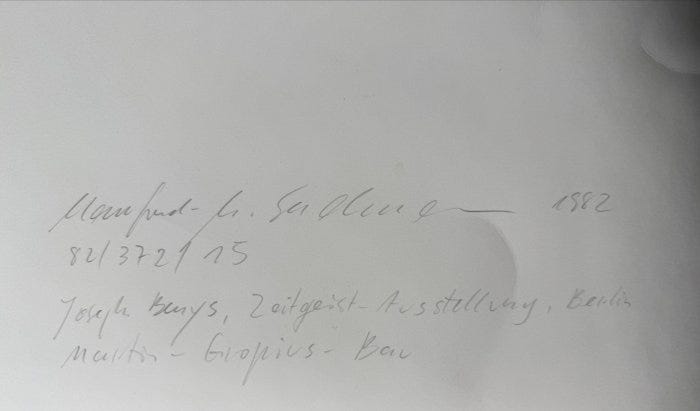 Manfred- M. 1982
82/372/15
Joseph Beuys, Zeitgeist-Ausstellung, Berlin
Martin-Gropius-Bau